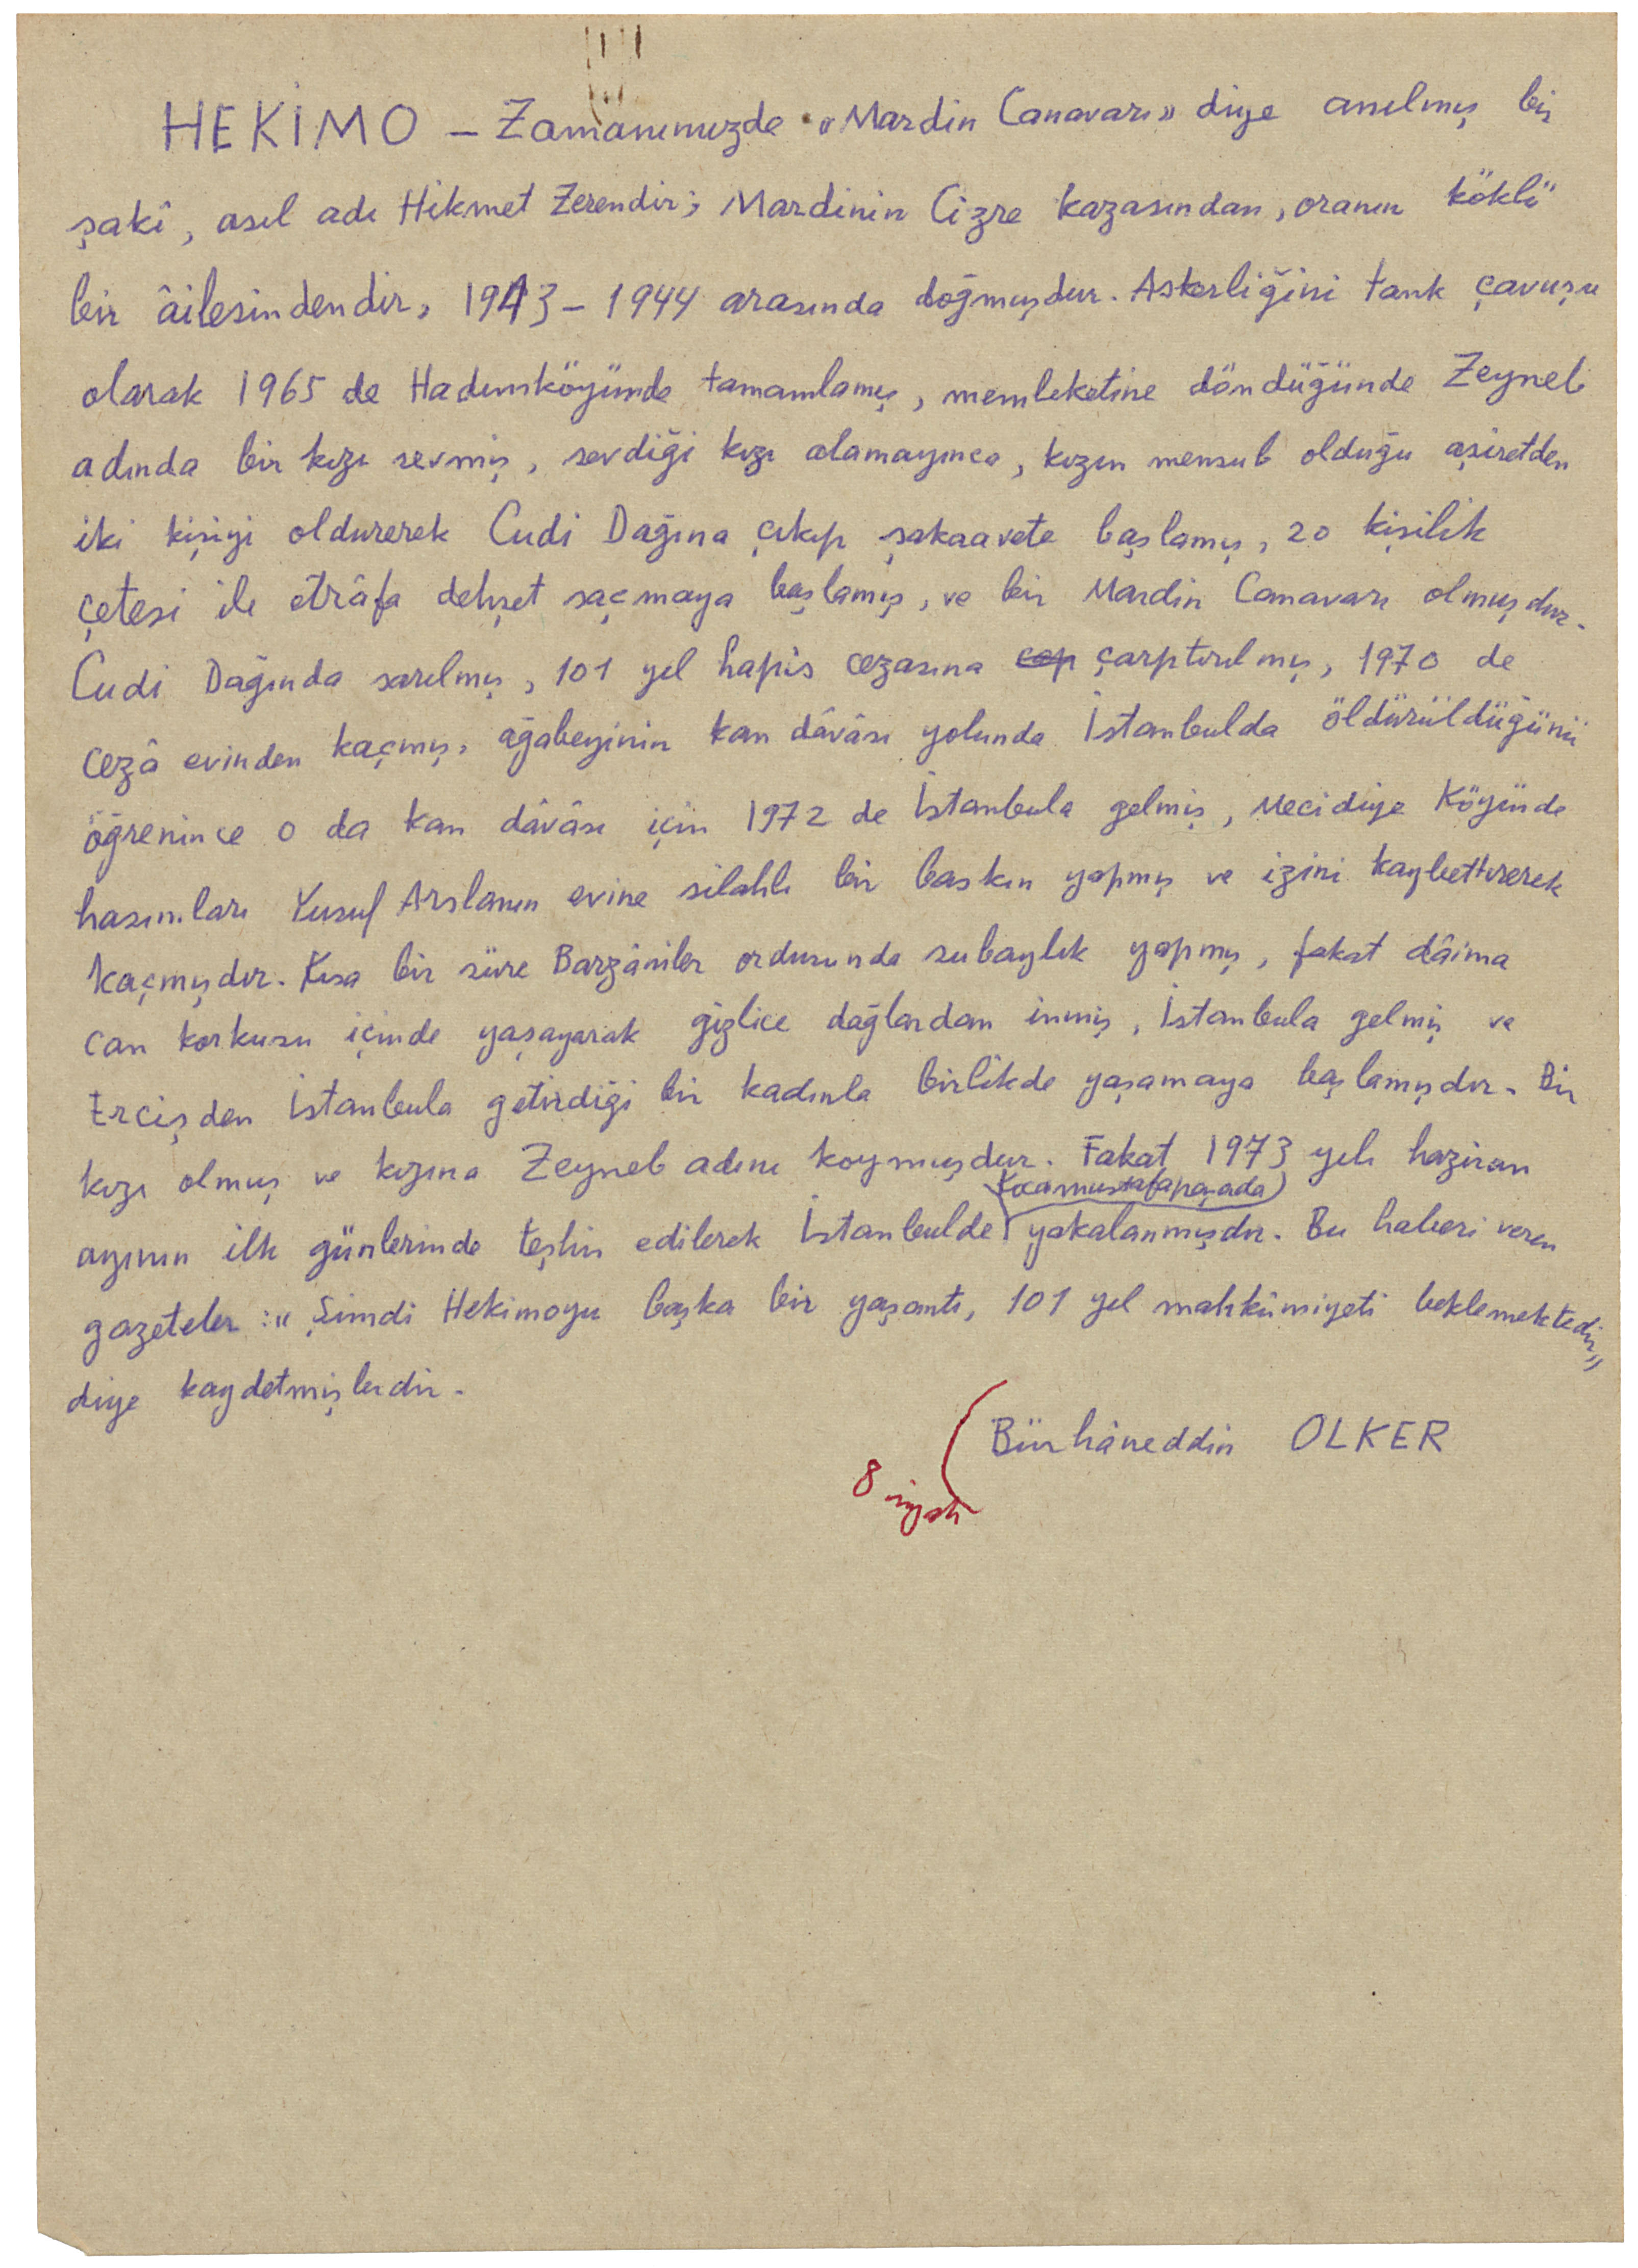 HEKİMO — Zamanımızda «Mardin Canavarı» diye anılmış bir
şakî, asıl adı Hikmet Zerendir; Mardinin Cizre kazasından, oranın köklü
bir âilesindendir, 1943 – 1944 arasında doğmuşdur. Askerliğini tank çavuşu
olarak 1965 de Hadımköyünde tamamlamış, memleketine döndüğünde Zeyneb
adında bir kızı sevmiş, sevdiği kızı alamayınca, kızın mensub olduğu aşiretden
iki kişiyi oldurerek Cudi Dağına çıkıp şakaavete başlamış, 20 kişilik
çetesi ile etrâfa dehşet saçmaya başlamış, ve bir Mardin Canavarı olmuşdur.
Cudi Dağında sarılmış, 101 yıl hapis cezasına cap çarptırılmış, 1970 de
cezâ evinden kaçmış, ağabeyinin kan dâvâsı yolunda İstanbulda öldürüldüğünü
öğrenince o da kan dâvâsı için 1972 de İstanbula gelmiş, Mecidiye Köyünde
hasımları Yusuf Arslanın evine silahlı bir baskın yapmış ve izini kaybettirerek
kaçmışdır. Kısa bir süre Barzâniler ordusunda subaylık yapmış, fakat dâima
can korkusu içinde yaşayarak gizlice dağlardan inmiş, İstanbula gelmiş ve
Ercişden İstanbula getirdiği bir kadınla birlikde yaşamaya başlamışdır. Bir
kızı olmuş ve kızına Zeyneb adını koymuşdur. Fakat 1973 yılı haziran
Kocamustafapaşada
ayının ilk günlerinde teşhis edilerek İstanbulde yakalanmışdır. Bu haberi veren
gazeteler : « Şimdi Hekimoyu başka bir yaşantı, 101 yıl mahkûmiyeti beklemektedir »
diye kaydetmişlerdir.
Bürhâneddin OLKER
8